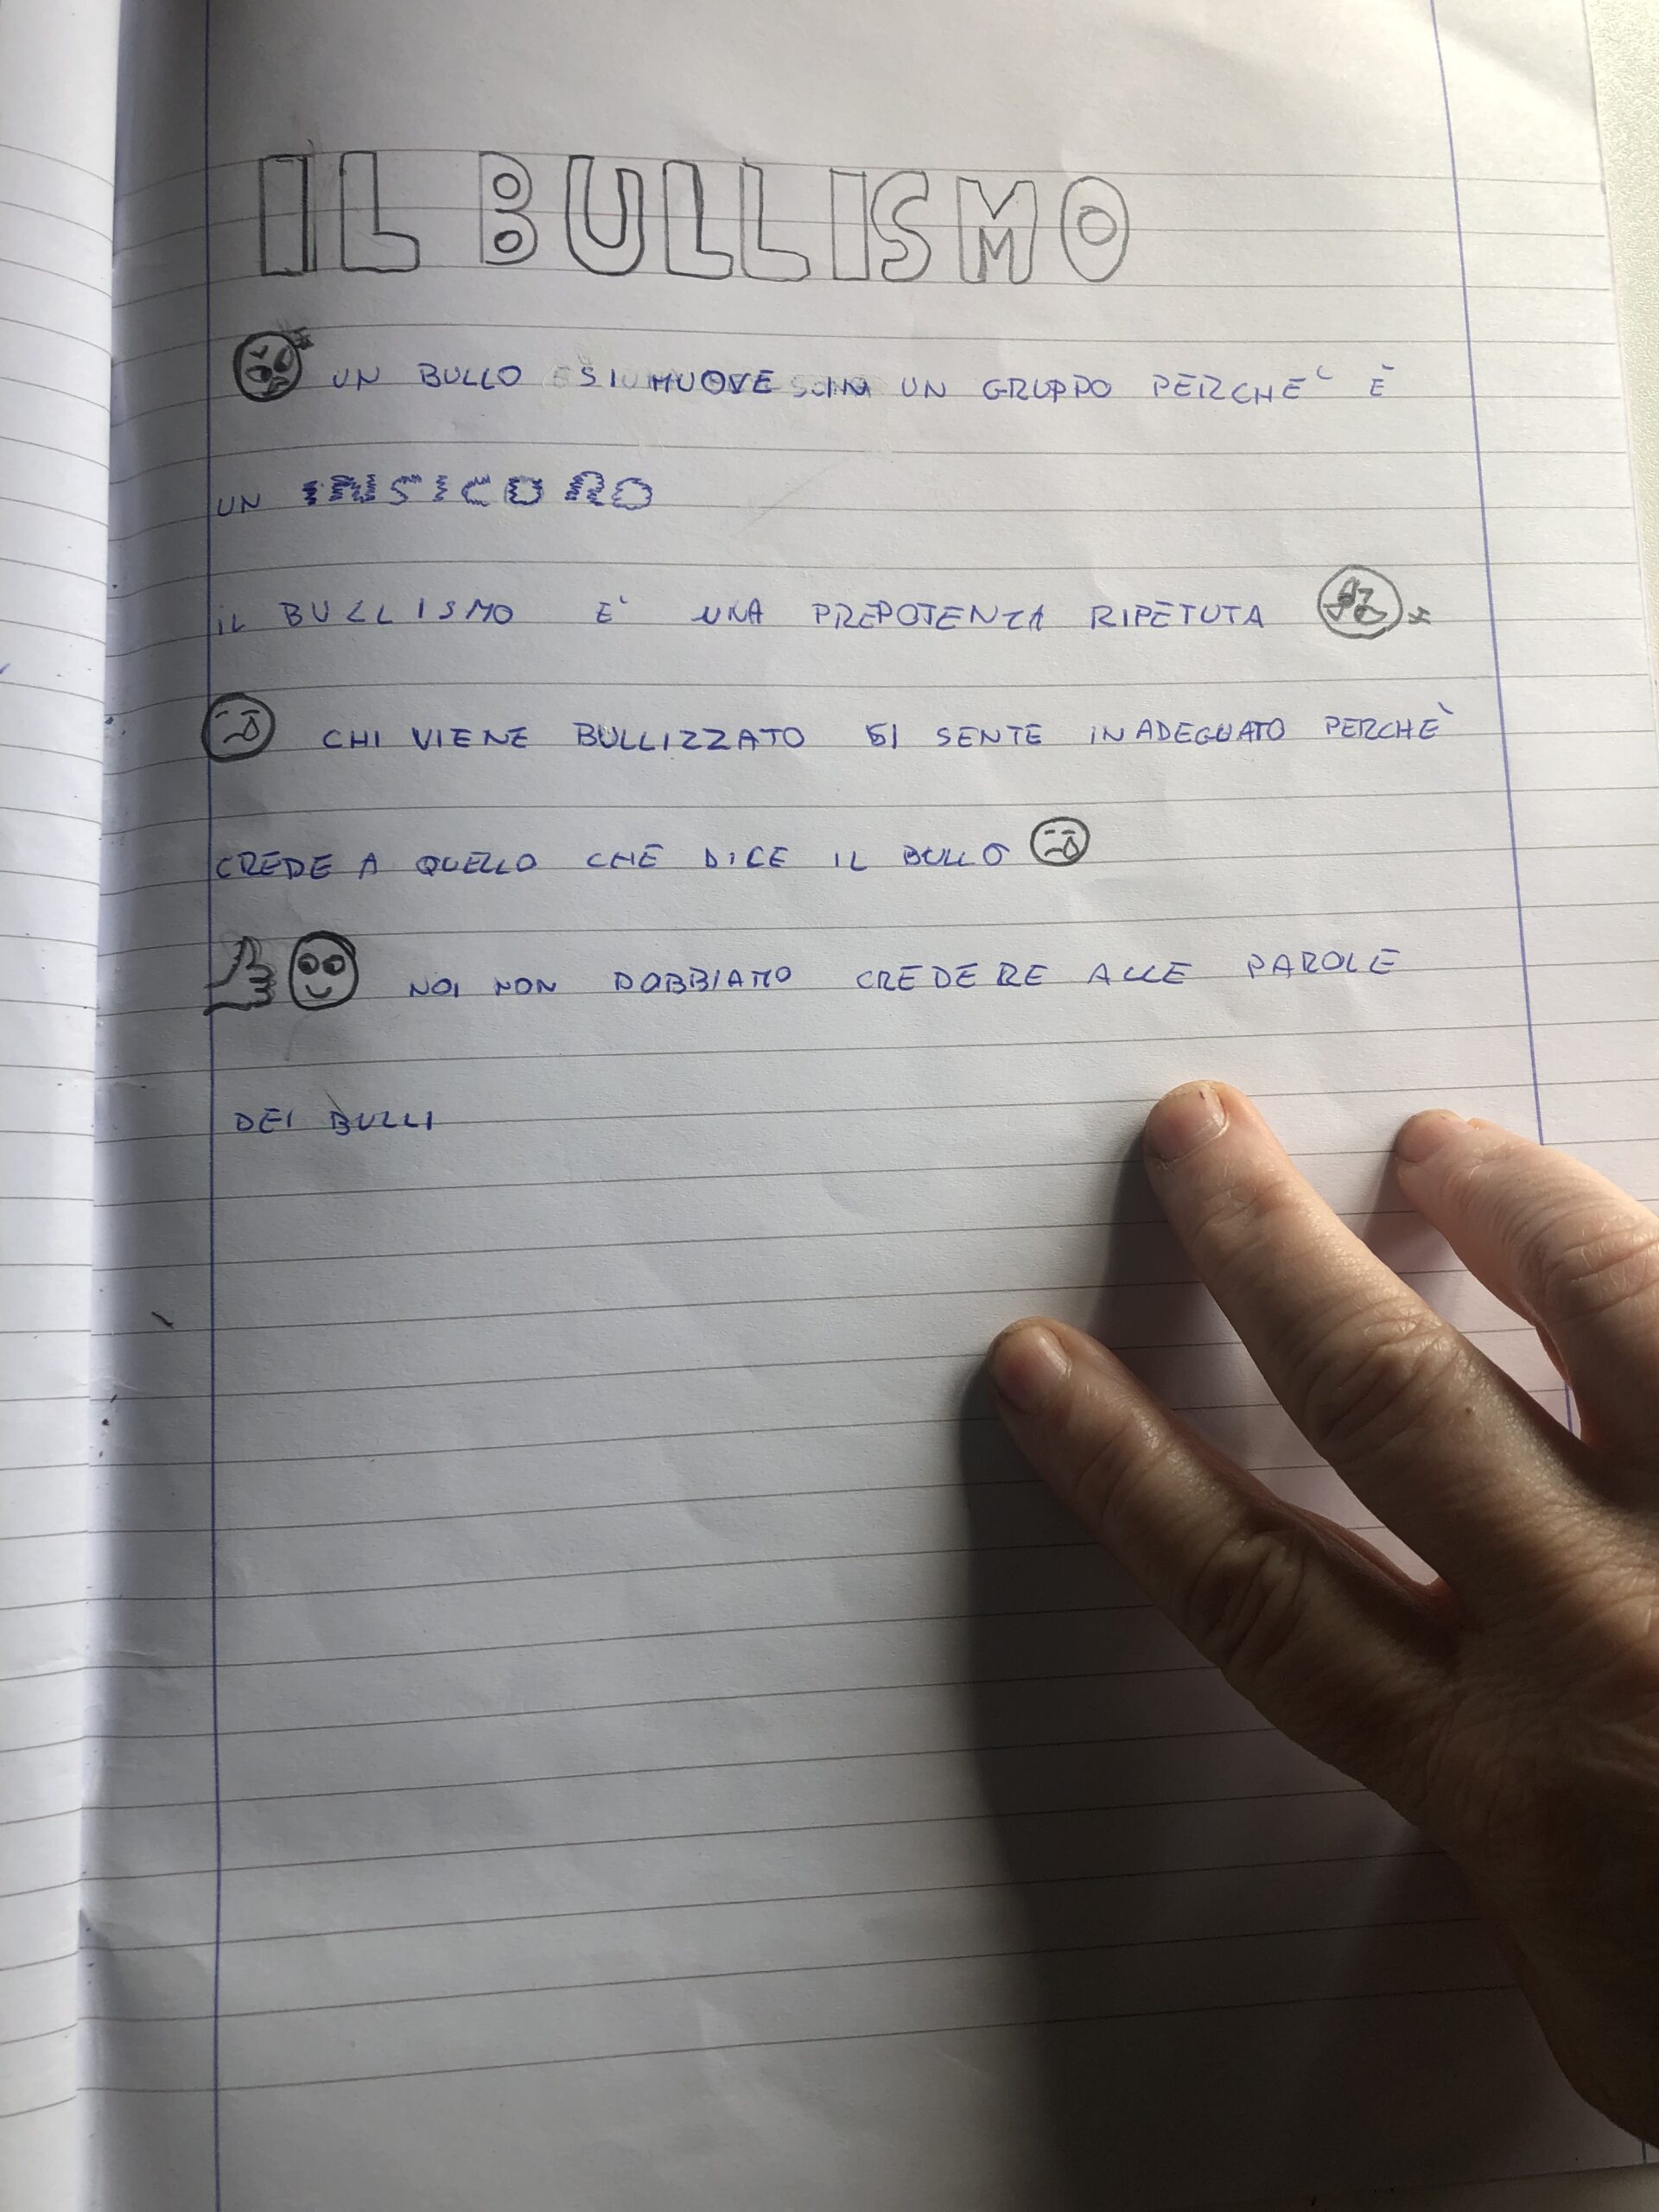 IL BULLISMO
UN BULLO SI MUOVE IN UN GRUPPO PERCHE' È
UN INSICURO
IL BULLISMO E' UNA PREPOTENZA RIPETUTA
CHI VIENE BULLIZZATO SI SENTE INADEGUATO PERCHÈ
CREDE A QUELLO CHE DICE IL BULLO
NOI NON DOBBIAMO CREDERE ALLE PAROLE
DEI BULLI